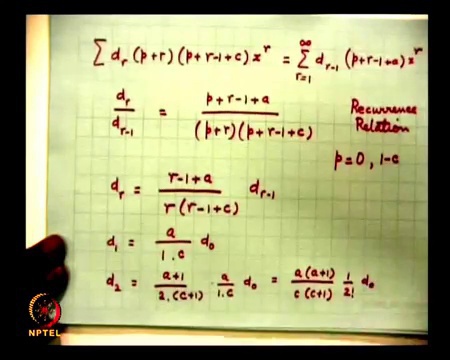 ∑ d_r (p+r)(p+r-1+c) x^r = ∑_{r=1}^{∞} d_{r-1} (p+r-1+a) x^r
d_r / d_{r-1} = (p+r-1+a) / ((p+r)(p+r-1+c))
Recurrence
Relation
p=0, 1-c
d_r = (r-1+a) / (r(r-1+c)) d_{r-1}
d_1 = a / (1.c) d_0
d_2 = (a+1) / (2.(c+1)) · a / (1.c) d_0 = a(a+1) / (c(c+1)) 1/2! d_0
NPTEL